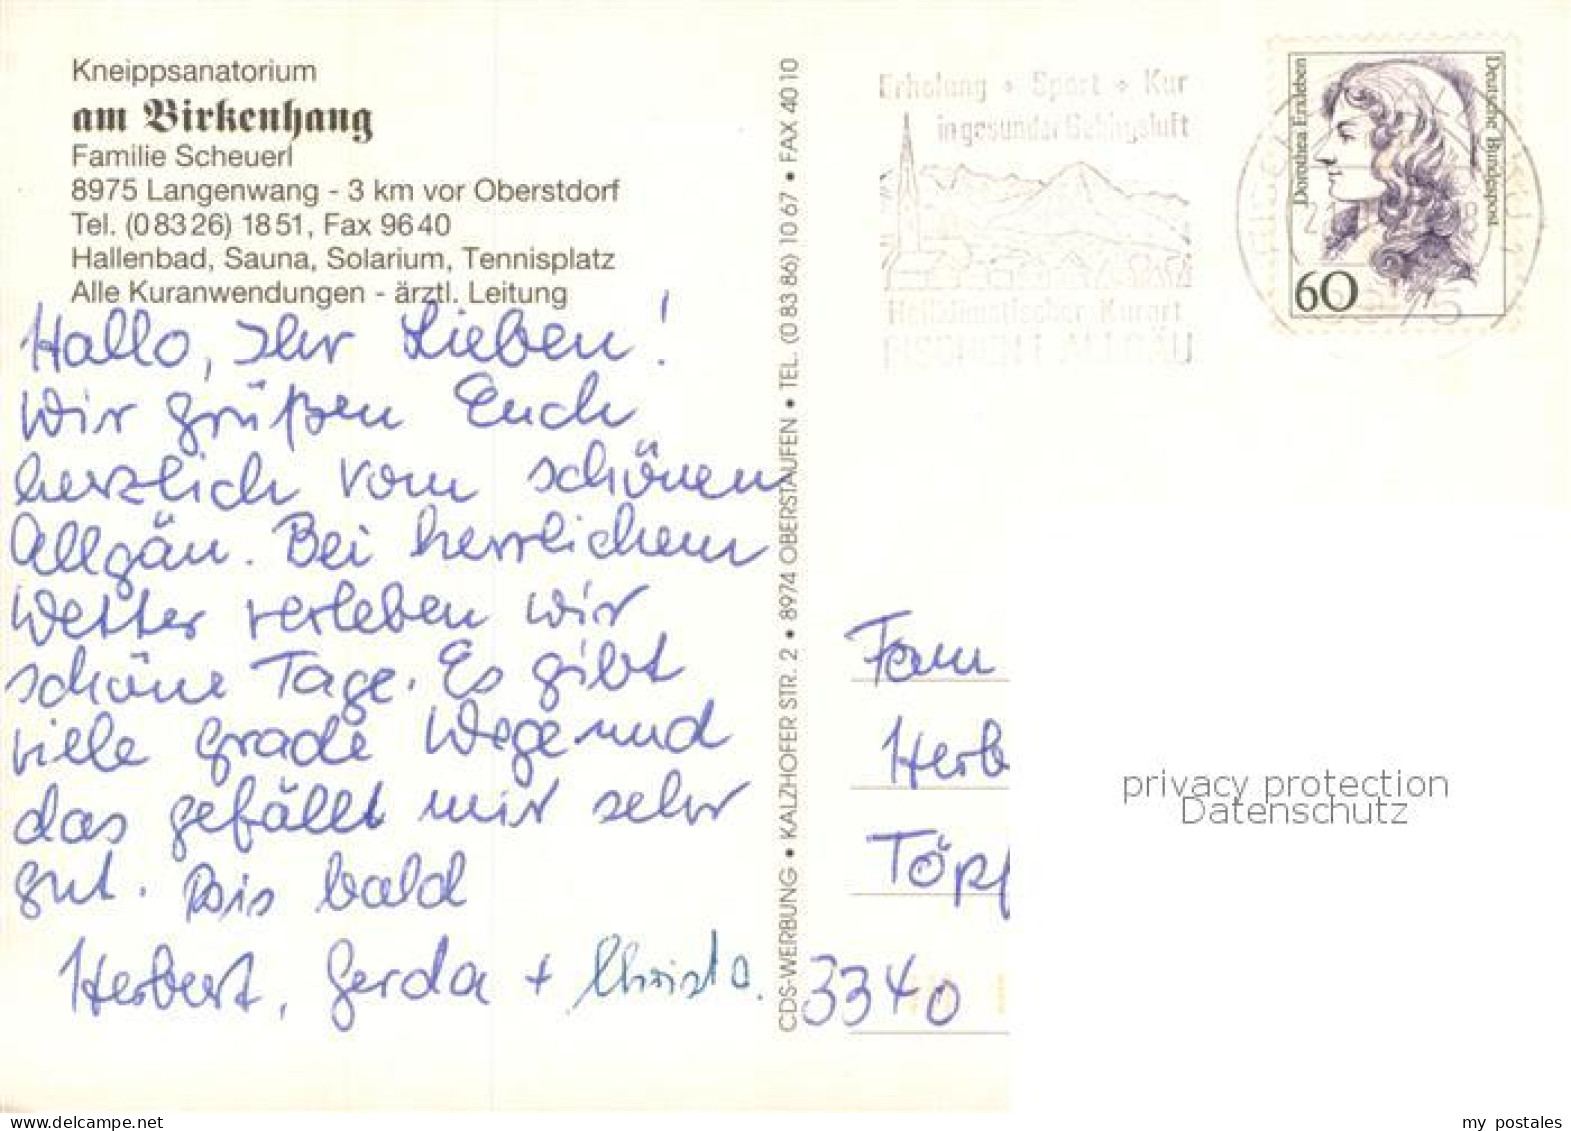 Kneippsanatorium
am Birkenhang
Familie Scheuerl
8975 Langenwang - 3 km vor Oberstdorf
Tel. (0 83 26) 18 51, Fax 96 40
Hallenbad, Sauna, Solarium, Tennisplatz
Alle Kuranwendungen - ärztl. Leitung
Hallo, Ihr Lieben!
Wir grüßen Euch
herzlich vom schönen
Allgäu. Bei herrlichem
Wetter verleben wir
schöne Tage. Es gibt
viele grade Wege und
das gefällt mir sehr
gut. Bis bald
Herbert, Gerda + Christa.
CDS-WERBUNG • KALZHOFER STR. 2 • 8974 OBERSTAUFEN • TEL. (0 83 86) 10 67 • FAX 40 10
Erholung + Sport + Kur
in gesunder Gebirgsluft
Heilklimatischer Kurort
FISCHEN I. ALLGÄU
Dorothea Erxleben
Deutsche Bundespost
60
Fam
Herb
Töpf
3340
privacy protection
Datenschutz
my postales